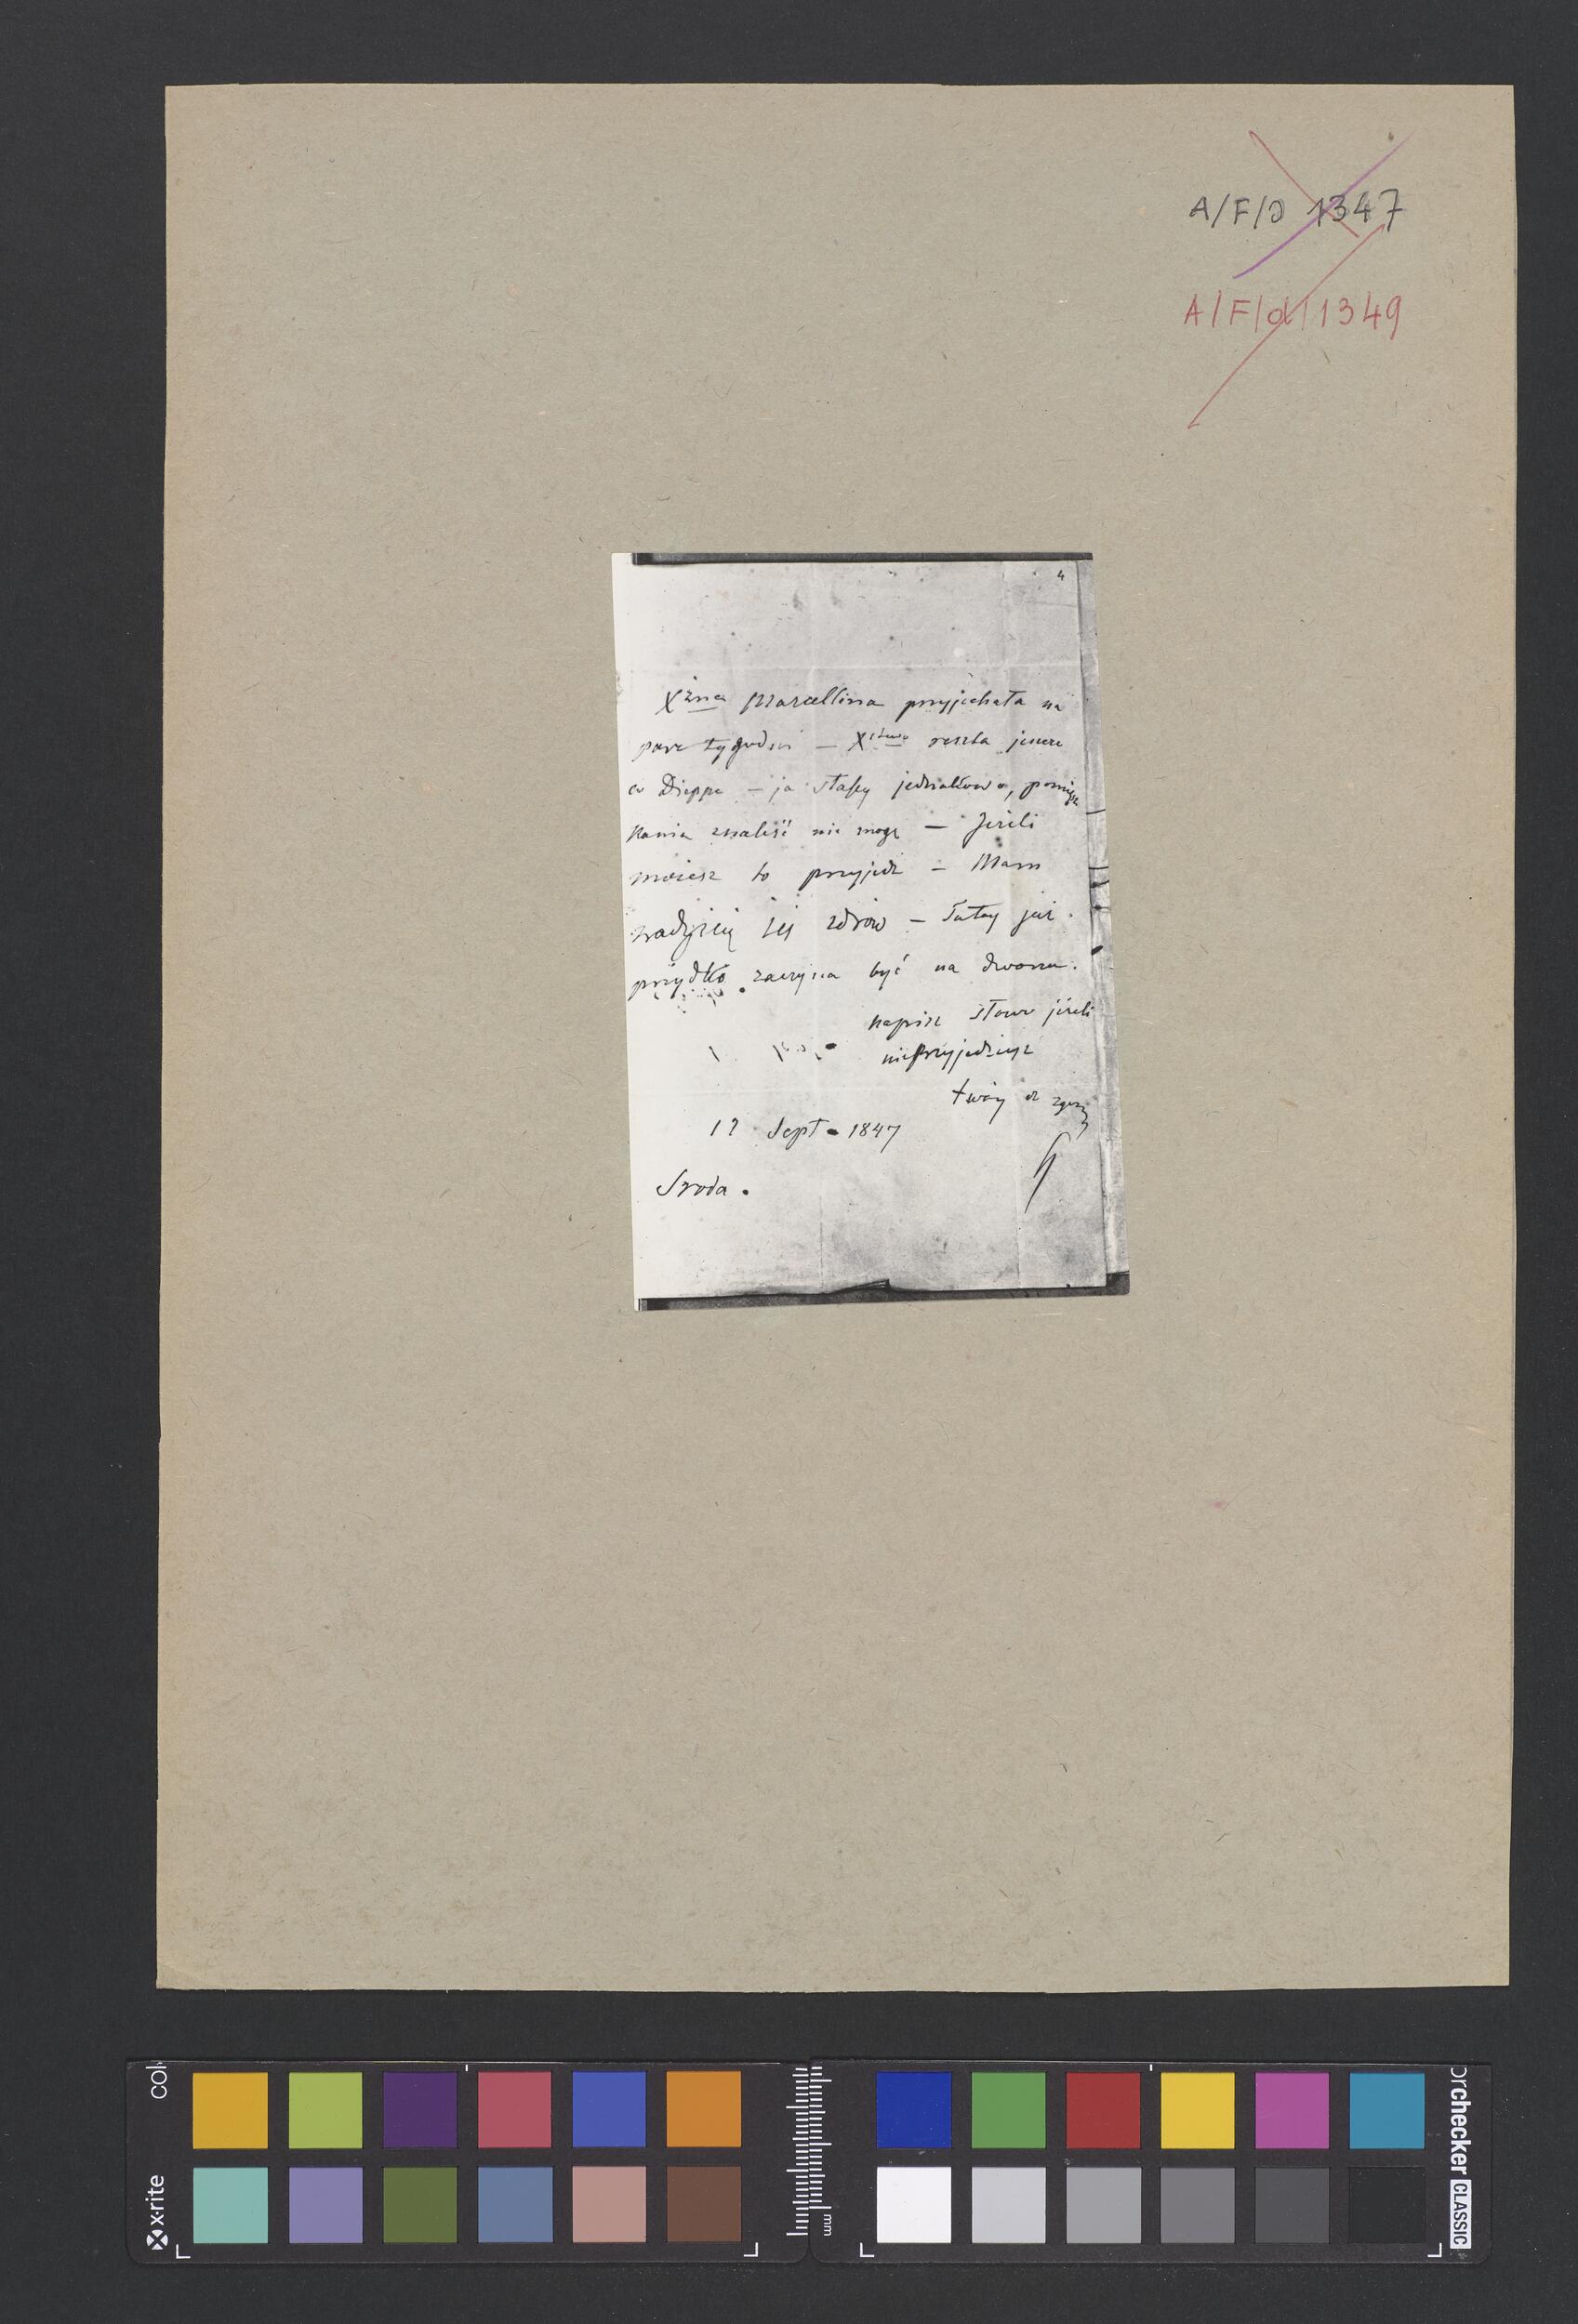 A/F/d 1347
A/F/d/1349
4
Xżna Marcellina przyjechała na
parę tygodni — Xstwo reszta jeszcze
w Dieppe — ja stoję jednakowo, pomiesz
kania znaleść nie mogę — Jeżeli
możesz to przyjedź — Mam
nadzieję żeś zdrów — Tutaj już
brzydko zaczyna być na dworze.
napisz słowo jeżeli
nieprzyjedziesz
twój
Sept. 1847
Sroda.
x-rite
colorchecker CLASSIC
mm